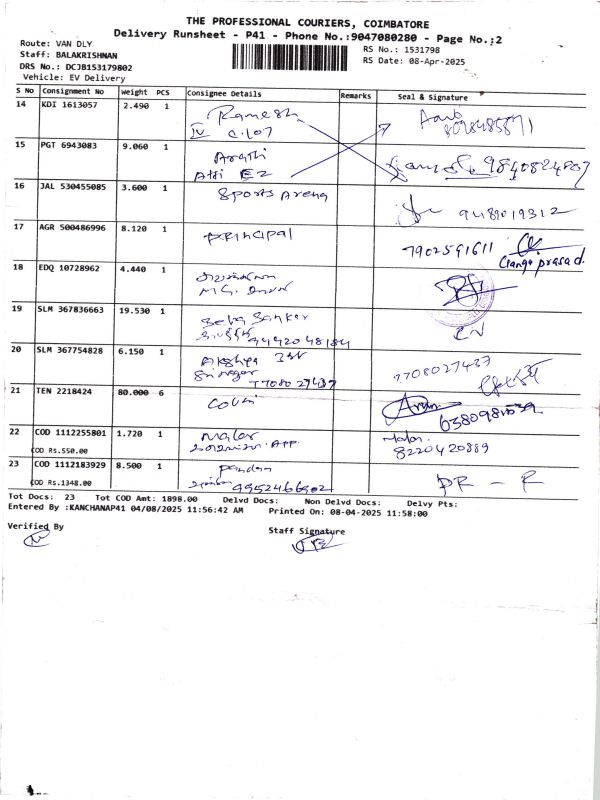 THE PROFESSIONAL COURIERS, COIMBATORE
Delivery Runsheet - P41 - Phone No.:9047080280 - Page No.:2
Route: VAN DLY
Staff: BALAKRISHNAN
DRS No.: DCJB153179802
Vehicle: EV Delivery
RS No.: 1531798
RS Date: 08-Apr-2025
S No Consignment No Weight PCS Consignee Details Remarks Seal & Signature
14 KDI 1613057 2.490 1 Ramesh
IV C.107
15 PGT 6943083 9.060 1 Arathi
Atti E2 9840824807
16 JAL 530455085 3.600 1 Sports Arena
9489019312
17 AGR 500486996 8.120 1 Principal 7902591611
Ganga prasad.
18 EDQ 10728962 4.440 1
19 SLM 367836663 19.530 1 Sankar
9442048184
20 SLM 367754828 6.150 1 Akshya
Sri nagar
7708027437 7708027437
21 TEN 2218424 80.000 6 6380981039
22 COD 1112255801 1.720 1 Malar Malar.
COD Rs.550.00 8220420889
23 COD 1112183929 8.500 1 Pandan PR - R
COD Rs.1348.00 9952466902
Tot Docs: 23 Tot COD Amt: 1898.00 Delvd Docs: Non Delvd Docs: Delvy Pts:
Entered By :KANCHANAP41 04/08/2025 11:56:42 AM Printed On: 08-04-2025 11:58:00
Verified By Staff Signature